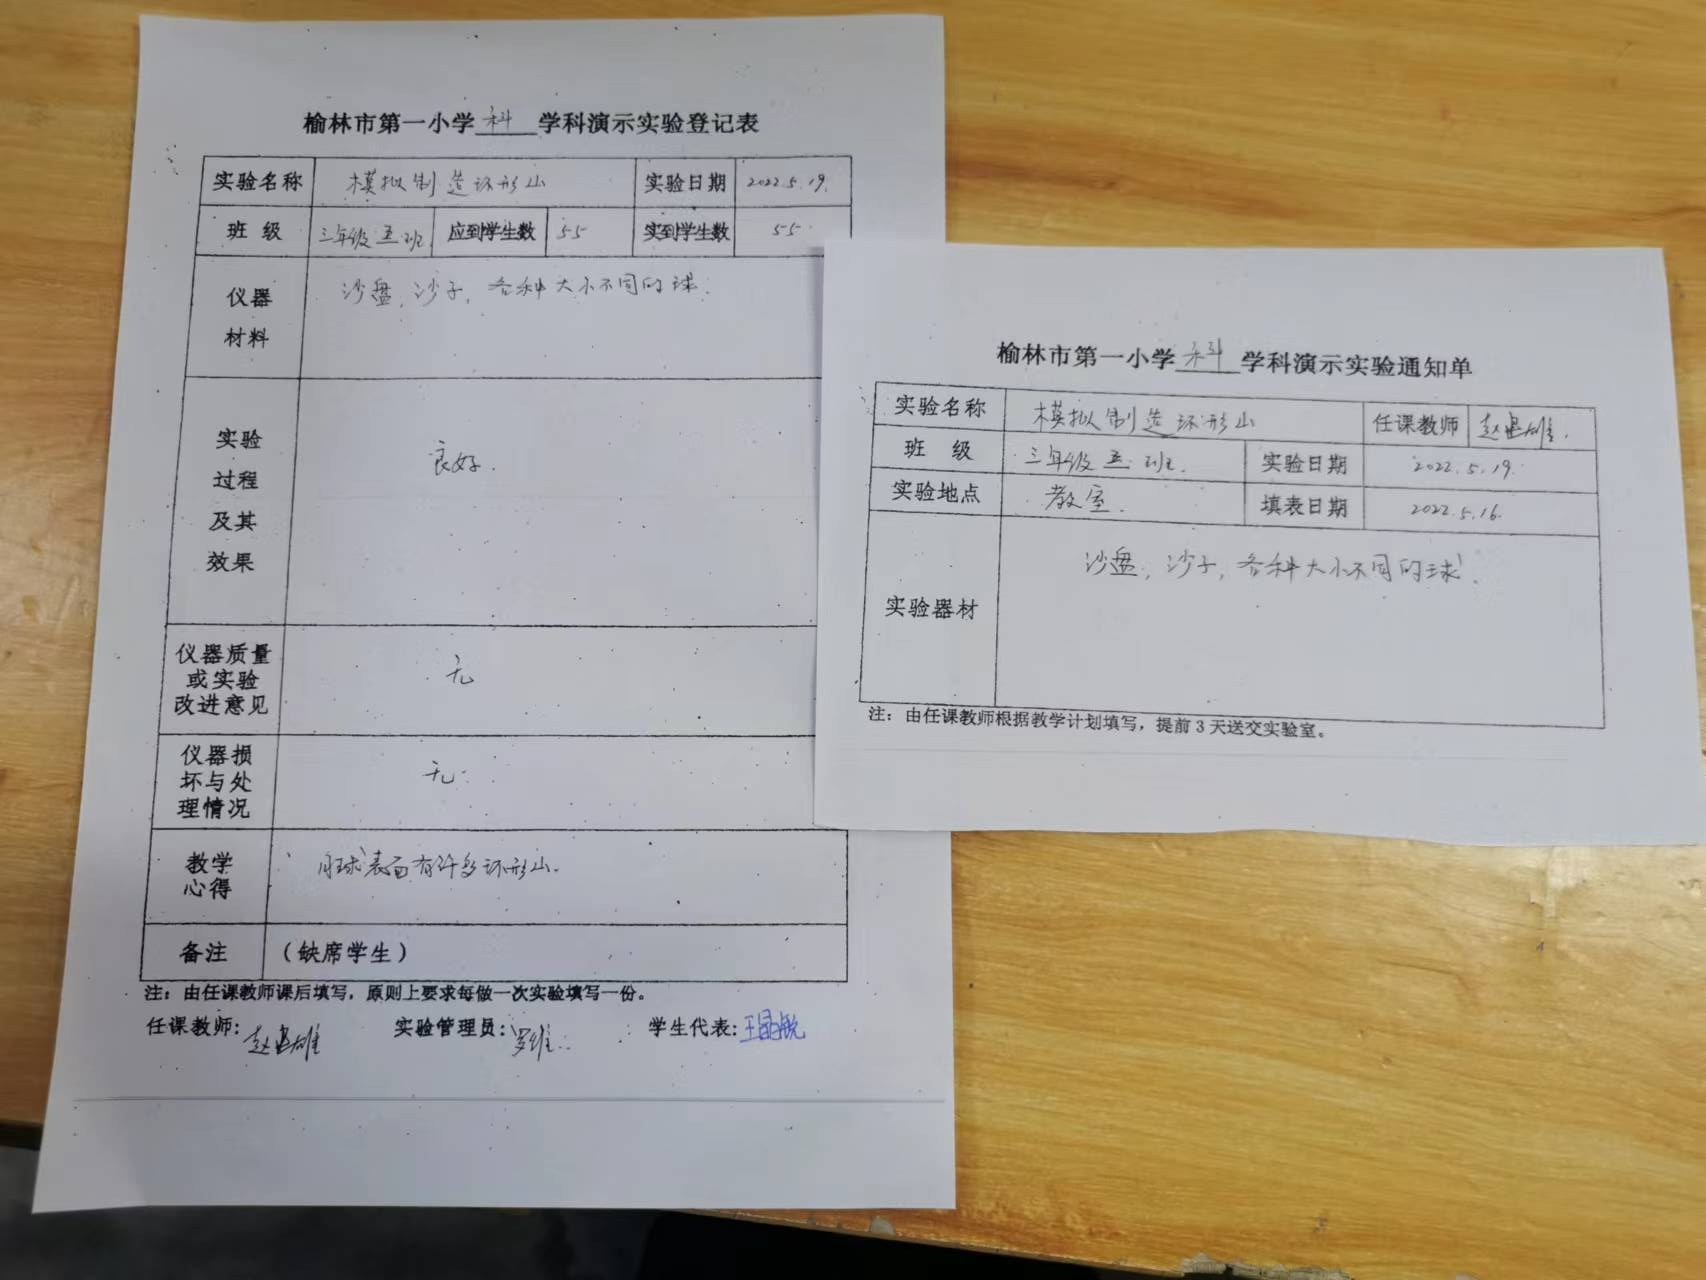 榆林市第一小学 科 学科演示实验登记表
实验名称 模拟制造环形山 实验日期 2022.5.19.
班 级 三年级五班 应到学生数 55 实到学生数 55
仪器 沙盘,沙子,各种大小不同的球.
材料
实验
过程 良好.
及其
效果
仪器质量
或实验 无
改进意见
仪器损
坏与处 无.
理情况
教学 月球表面有许多环形山.
心得
备注 (缺席学生)
注:由任课教师课后填写,原则上要求每做一次实验填写一份。
任课教师: 赵 雄 实验管理员: 罗维 学生代表: 王
榆林市第一小学 科 学科演示实验通知单
实验名称 模拟制造环形山 任课教师 赵 雄.
班 级 三年级五班. 实验日期 2022.5.19.
实验地点 教室. 填表日期 2022.5.16.
实验器材 沙盘,沙子,各种大小不同的球.
注:由任课教师根据教学计划填写,提前3天送交实验室。